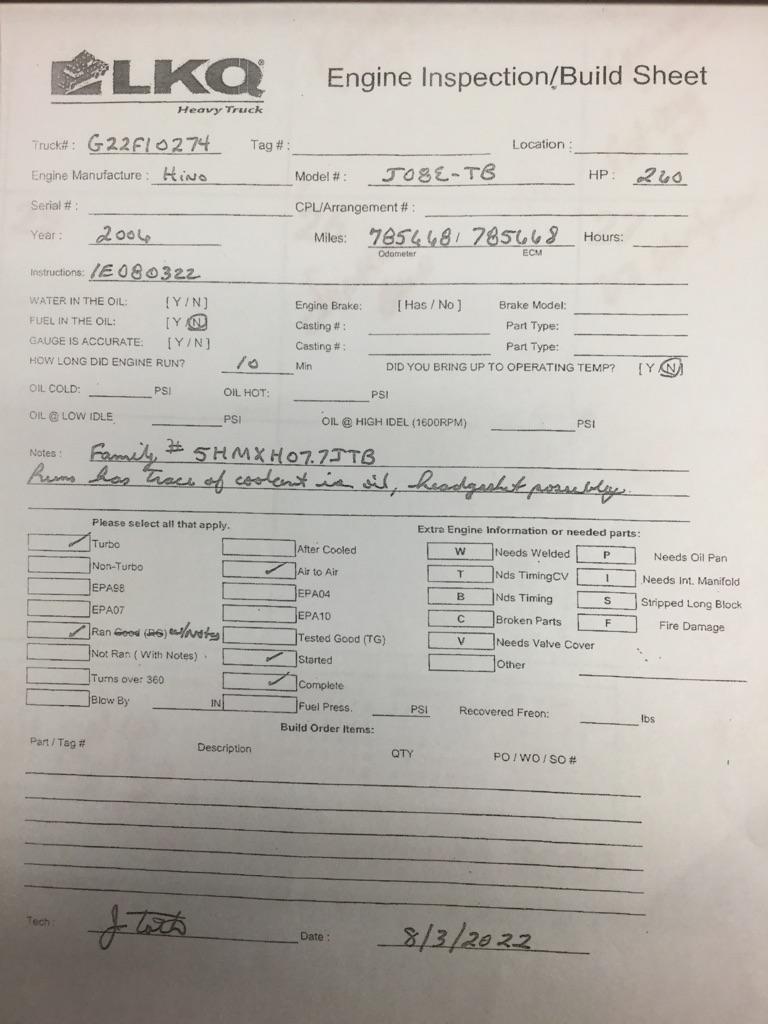 LKQ®
Heavy Truck
Engine Inspection/Build Sheet
Truck# : G22F10274 Tag # : Location :
Engine Manufacture : Hino Model # : J08E-TB HP : 260
Serial # : CPL/Arrangement # :
Year : 2006 Miles: 785668 / 785668 Hours:
Odometer ECM
Instructions: IE080322
WATER IN THE OIL: [ Y / N ] Engine Brake: [ Has / No ] Brake Model:
FUEL IN THE OIL: [ Y / N ] Casting # : Part Type:
GAUGE IS ACCURATE: [ Y / N ] Casting # : Part Type:
HOW LONG DID ENGINE RUN? 10 Min DID YOU BRING UP TO OPERATING TEMP? [ Y / N ]
OIL COLD: PSI OIL HOT: PSI
OIL @ LOW IDLE PSI OIL @ HIGH IDEL (1600RPM) PSI
Notes : Family # 5HMXH07.7JTB
Runs has trace of coolent in oil, headgasket possibley.
Please select all that apply. Extra Engine Information or needed parts:
Turbo After Cooled W Needs Welded P Needs Oil Pan
Non-Turbo Air to Air T Nds TimingCV I Needs Int. Manifold
EPA98 EPA04 B Nds Timing S Stripped Long Block
EPA07 EPA10 C Broken Parts F Fire Damage
Ran Good (RG) w/notes Tested Good (TG) V Needs Valve Cover
Not Ran ( With Notes) Started Other
Turns over 360 Complete
Blow By IN Fuel Press. PSI Recovered Freon: lbs
Build Order Items:
Part / Tag # Description QTY PO / WO / SO #
Tech : J Toth Date : 8/3/2022